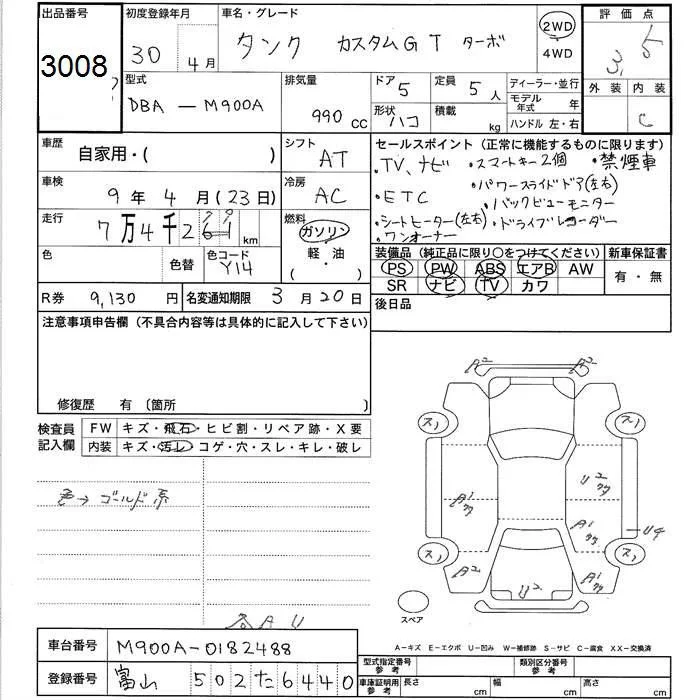 出品番号 初度登録年月 車名・グレード 評価点
3008 30年 4月 タンク カスタムGT ターボ 2WD 4WD 3.5
型式 排気量 ドア 5 定員 5人 ディーラー・並行 外装 内装
DBA-M900A 990cc 形状 ハコ 積載 kg モデル年式 年 C
ハンドル 左・右
車歴 自家用・( ) シフト AT セールスポイント(正常に機能するものに限ります)
・TV、ナビ ・スマートキー2個 ・禁煙車
車検 9年 4月(23日) 冷房 AC ・ETC ・パワースライドドア(左右)
・バックビューモニター
走行 7万4千2 km 燃料 ガソリン ・シートヒーター(左右) ・ドライブレコーダー
軽・油 ・ワンオーナー
( ・ )
色 色替 色コード Y14 装備品(純正品に限り○をつけてください) 新車保証書
PS PW ABS エアB AW 有・無
R券 9,130円 名変通知期限 3月20日 SR ナビ TV カワ
注意事項申告欄(不具合内容等は具体的に記入して下さい) 後日品
修復歴 有 (箇所 )
検査員記入欄 FW キズ・飛石・ヒビ割・リペア跡・X要
内装 キズ・汚レ・コゲ・穴・スレ・キレ・破レ
色→ゴールド系
各AU
A2 A2
スノ スノ
U2 クワ
A1 クワ
A1 クワ U4
スノ スノ
A2 U2 A1 クワ
スペア
A-キズ E-エクボ U-凹み W-補修跡 S-サビ C-腐食 XX-交換済
車台番号 M900A-0182488
登録番号 富山 502 た 6440
型式指定番号 参考 類別区分番号 参考
車庫証明用 参考 長さ cm 幅 cm 高さ cm